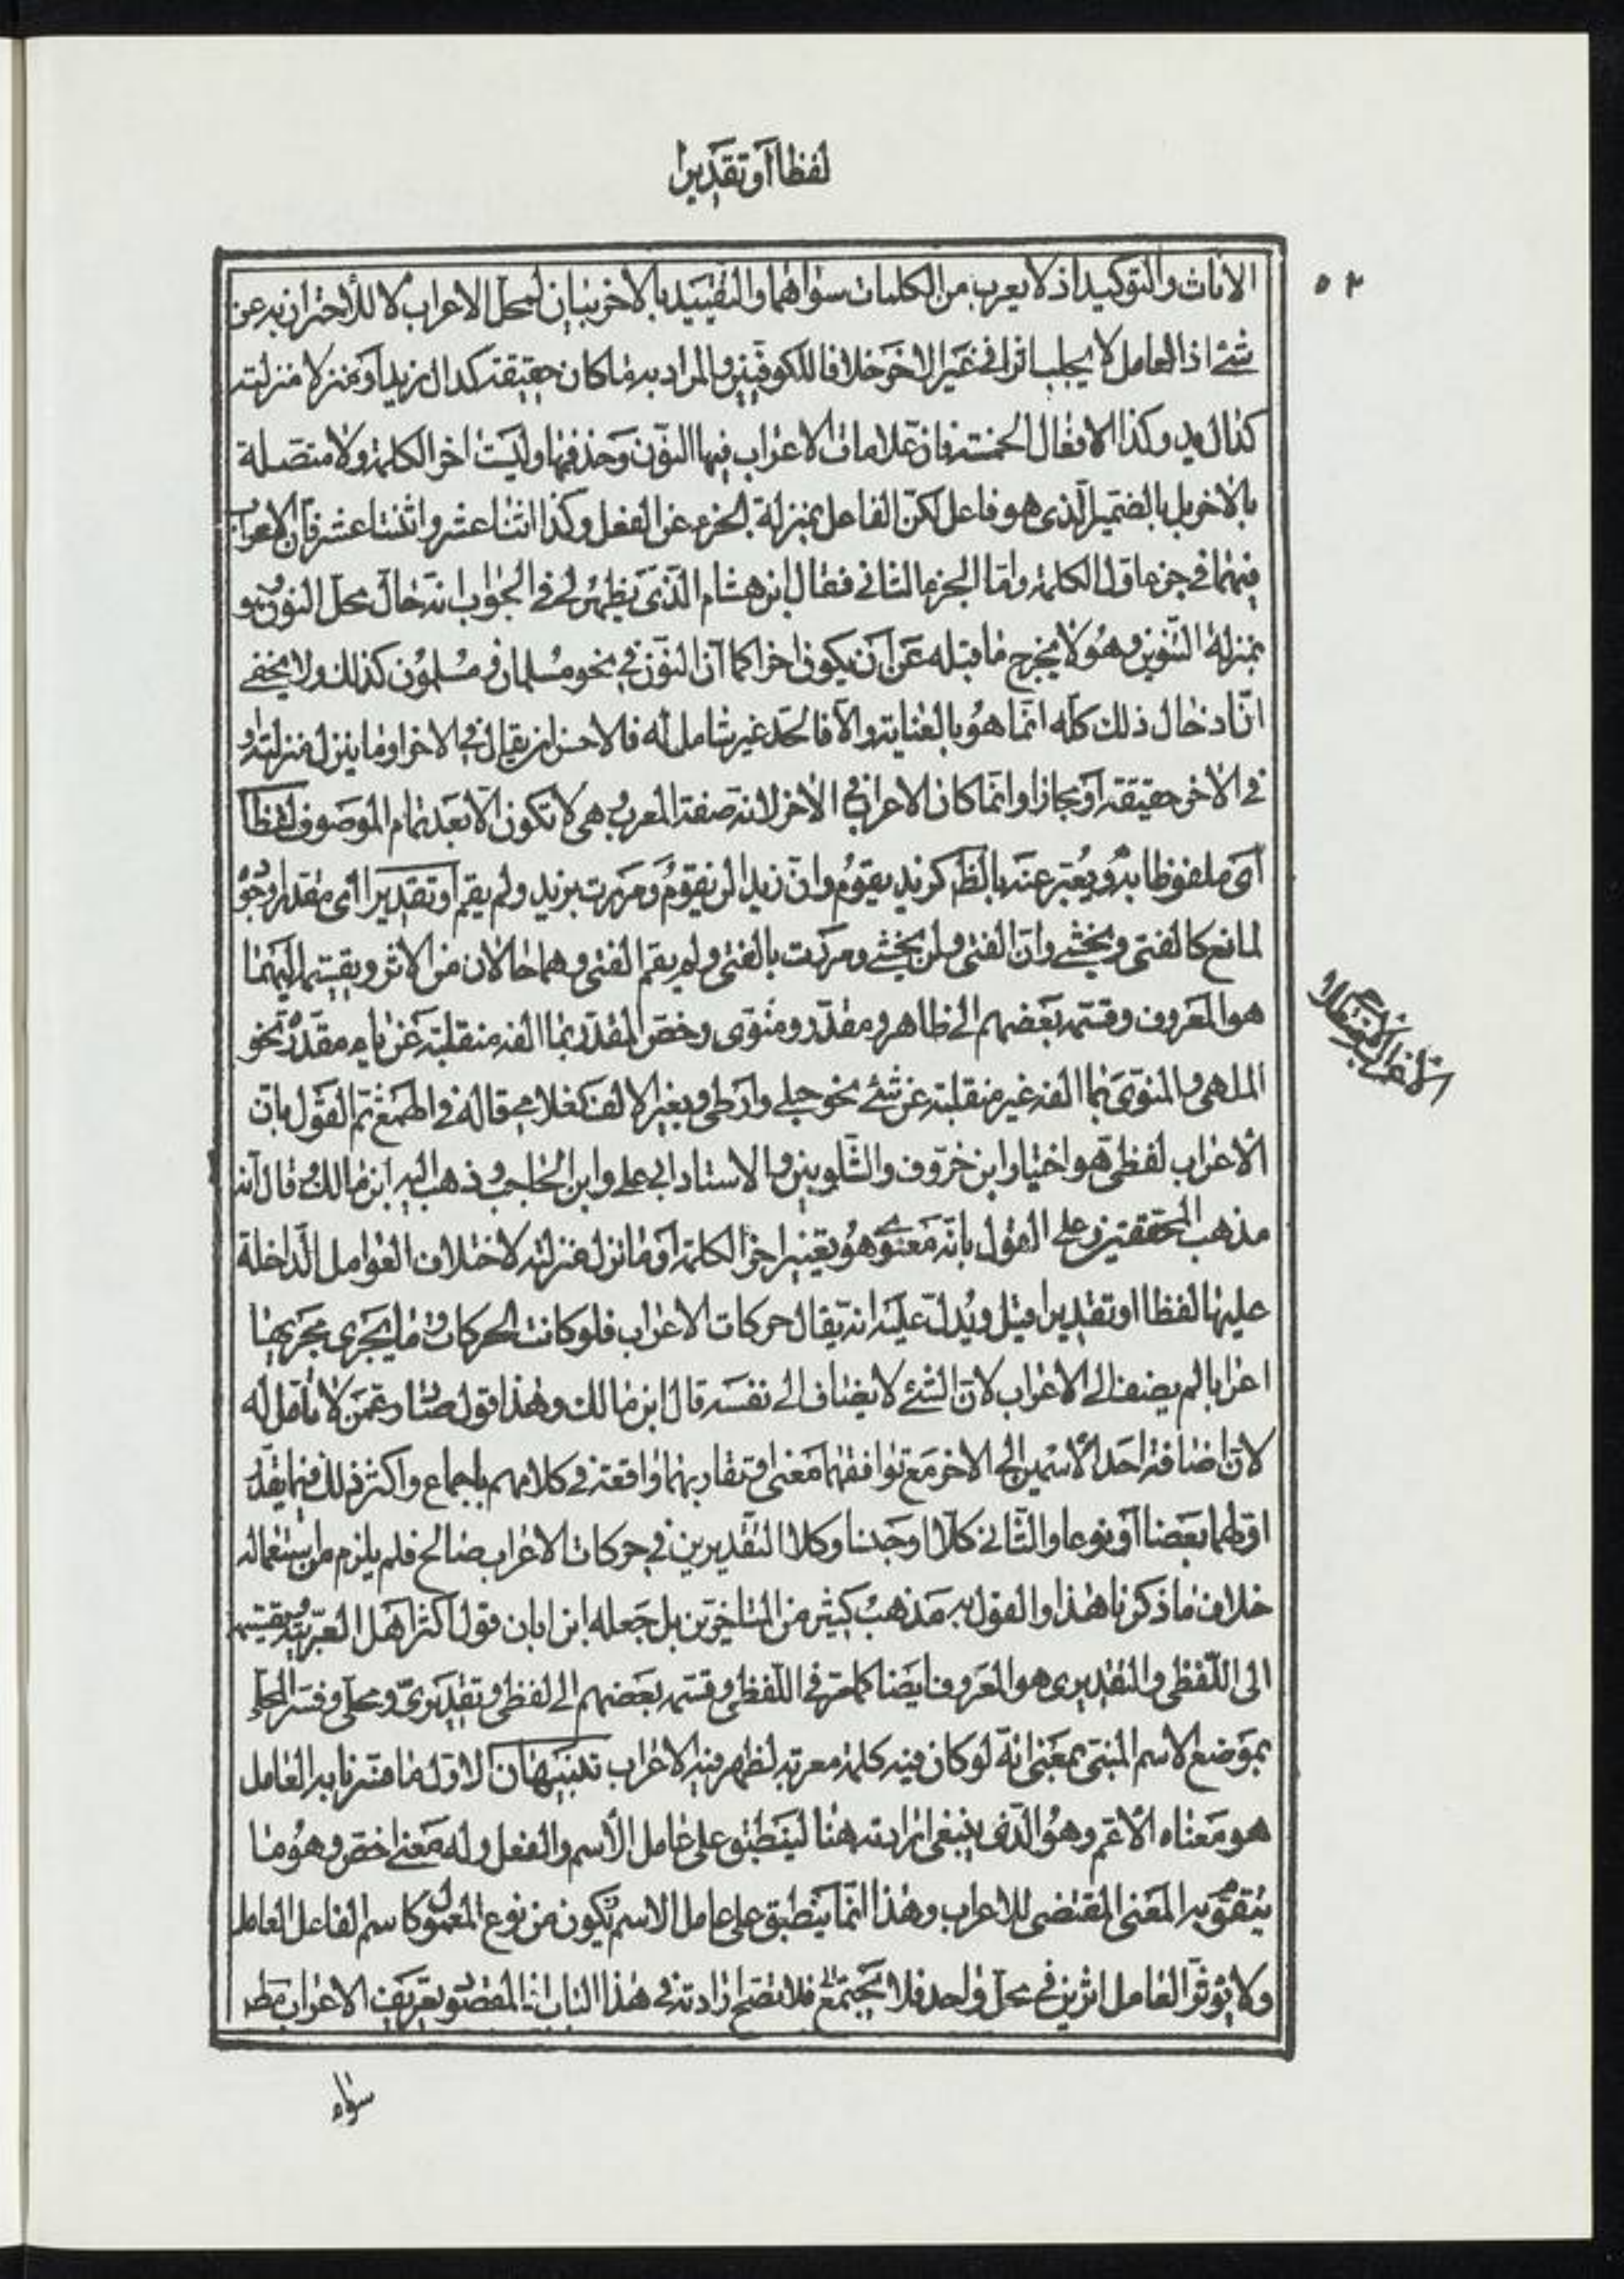 لفظا أو تقديرا
٥٢
الاناث والتوكيد اذ لا يعرب من الكلمات سواهما والتقييد بالاخر بيان لمحل الاعراب لا للاحتراز به عن
شئ اذ العامل لا يجلب اثرا في غير الاخر خلافا للكوفيين والمراد به ما كان حقيقة كدال زيد او بمنزلا منزلته
كدال يد وكذا الافعال الخمسة فان علامات الاعراب فيها النون وحذفها وليست اخر الكلمة ولا متصلة
بالاخر بل بالضمير الذى هو فاعل لكن الفاعل بمنزلة الجزء من الفعل وكذا اثنا عشر واثنتا عشر فان الاعراب
فيهما في جزء اول الكلمة واما الجزء الثانى فقال ابن هشام الذى يظهر لى في الجواب انه حال محل النون وهو
بمنزلة التنوين وهو لا يخرج ما قبله عن ان يكون اخرا كما ان النون في نحو مسلمان ومسلمون كذلك ولا يخفى
ان ادخال ذلك كله انما هو بالعناية والا فالحد غير شامل له فالاحسن ان يقال في الاخر او ما ينزل منزلته او
في الاخر حقيقة او مجازا وانما كان الاعراب في الاخر لانه صفة المعرب وهى لا تكون الا بعد تمام الموصوف لفظا
أى ملفوظا به ويعبر عنه بالظاهر كزيد يقوم وان زيدا لن يقوم ومررت بزيد ولم يقم او تقديرا اى مقدرا وجوده
لمانع كالفتى ويخشى وان الفتى ولن يخشى ومررت بالفتى ولم يقم الفتى وهما حالان من الاثر وتقسيمه اليهما
هو المعروف وقسمه بعضهم الى ظاهر ومقدر ومنوى وخص المقدر بما الفه منقلبة عن ياء مقدرة نحو
الملهى والمنوى بما الفه غير منقلبة عن شئ نحو حبلى وارطى وبغير الالف كغلامى قاله في الهمع ثم القول بان
الاعراب لفظى هو اختيار ابن خروف والشلوبين والاستاد ابى على وابن الحاجب وذهب اليه ابن مالك وقال انه
مذهب المحققين وعلى القول بانه معنوى هو تغيير اخر الكلمة او ما نزل منزلته لاختلاف العوامل الداخلة
عليها لفظا او تقديرا قيل ويدل عليه انه يقال حركات الاعراب فلو كانت الحركات وما يجرى مجريها
اعرابا لم يضف الى الاعراب لان الشئ لا يضاف الى نفسه قال ابن مالك وهذا قول صادر عمن لا تأمل له
لان اضافة احد الاسمين الى الاخر مع توافقهما معنى او تقاربهما واقعة في كلامهم باجماع واكثر ذلك فيما يقدر
اولهما بعضا او نوعا والثانى كلا او جنسا وكلا التقديرين في حركات الاعراب صالح فلم يلزم من استعماله
خلاف ما ذكرنا هذا والقول به مذهب كثير من المتاخرين بل جعله ابن اياز قول اكثر اهل العربية وتقسيمه
الى اللفظى والتقديرى هو المعروف ايضا كما مر في اللفظى وقسمه بعضهم الى لفظى وتقديرى ومحلى وفسر المحلى
بموضع الاسم المبنى بمعنى انه لو كان فيه كلمة معربة لظهر فيه الاعراب تنبيهان الاول ما فسرنا به العامل
هو معناه الاعم وهو الذى ينبغى ارادته هنا لينطبق على عامل الاسم والفعل وله معنى اخص وهو ما
يتقوم به المعنى المقتضى للاعراب وهذا انما ينطبق على عامل الاسم يكون من نوع المعمول كاسم الفاعل العامل
ولا يؤثر العامل اثرين في محل واحد فلا يجتمع فلا تصح ارادته في هذا الباب اذ المقصود تعريف الاعراب مطلقا
سواء